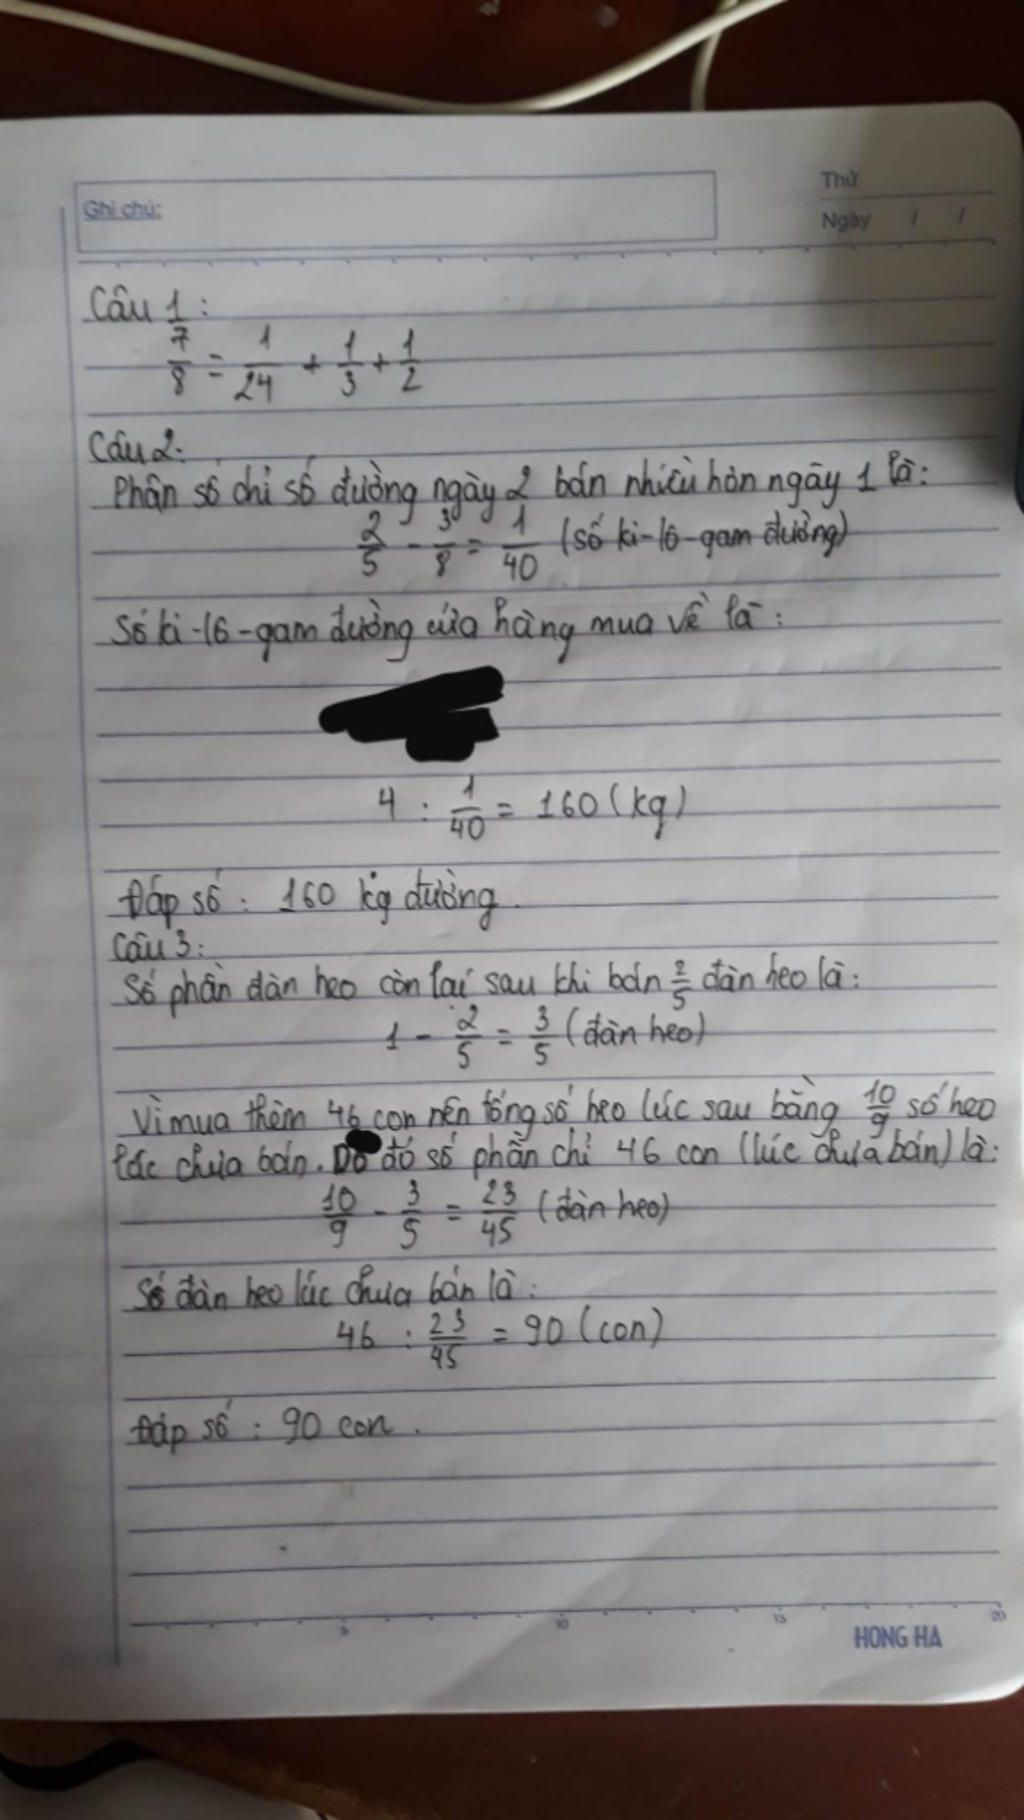 Ghi chú:
Thứ
Ngày / /
Câu 1:
7/8 = 1/24 + 1/3 + 1/2
Câu 2:
Phân số chỉ số đường ngày 2 bán nhiều hơn ngày 1 là:
2/5 - 3/8 = 1/40 (số ki-lô-gam đường)
Số ki-lô-gam đường cửa hàng mua về là:
4 : 1/40 = 160 (kg)
Đáp số : 160 kg đường.
Câu 3:
Số phần đàn heo còn lại sau khi bán 2/5 đàn heo là:
1 - 2/5 = 3/5 (đàn heo)
Vì mua thêm 46 con nên tổng số heo lúc sau bằng 10/9 số heo
lúc chưa bán. Do đó số phần chỉ 46 con (lúc chưa bán) là:
10/9 - 3/5 = 23/45 (đàn heo)
Số đàn heo lúc chưa bán là:
46 : 23/45 = 90 (con)
Đáp số : 90 con.
5 10 15 20
HONG HA